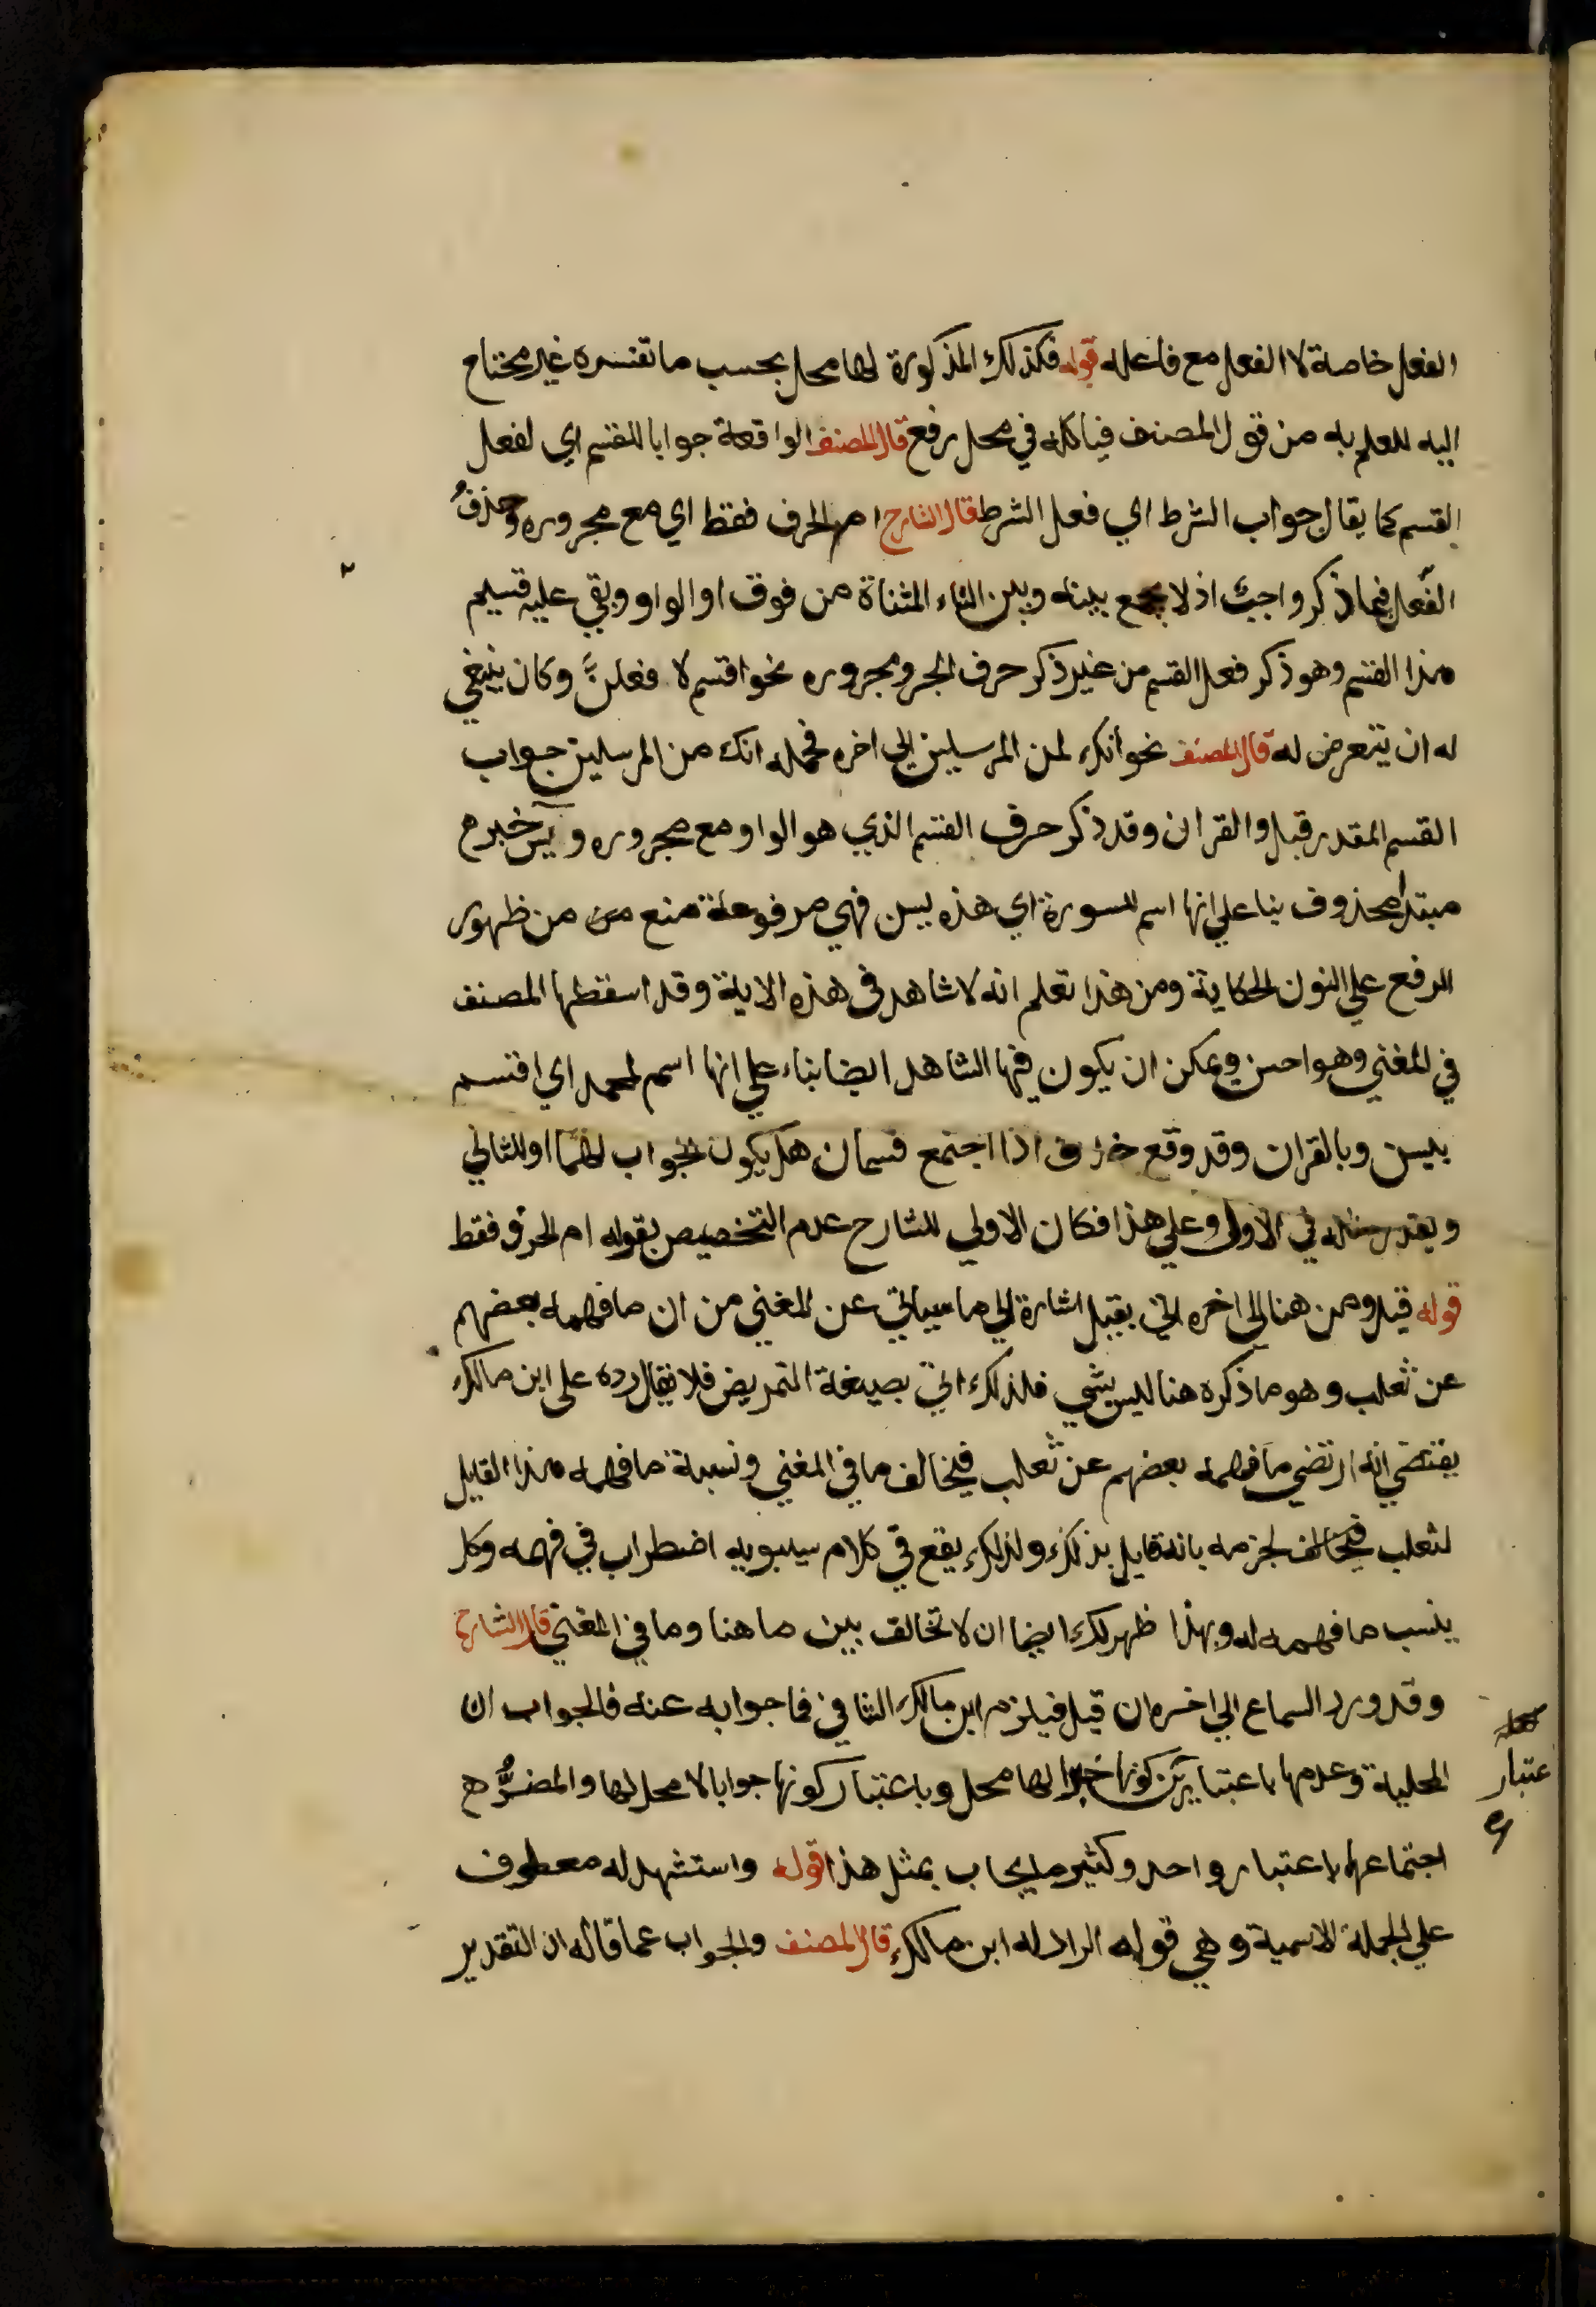 الفعل خاصة لا الفعل مع فاعله قوله فكذلك المذكورة لها محل بحسب ما تفسره غير محتاج
اليه للعلم به من قول المصنف فياكله في محل رفع قال المصنف الواقعة جوابا للقسم اي لفعل
القسم كما يقال جواب الشرط اي فعل الشرط قال الشارح ام الحرف فقط اي مع مجروره وحذف
الفعل فيما ذكر واجب اذ لا يجمع بينه وبين التاء المثناة من فوق او الواو وبقي عليه قسيم
هذا القسم وهو ذكر فعل القسم من غير ذكر حرف الجر ومجروره نحو اقسم لا فعلن وكان ينبغي
له ان يتعرض له قال المصنف نحو انك لمن المرسلين الى اخره فجملة انك من المرسلين جواب
القسم المقدر قبل والقران وقد ذكر حرف القسم الذي هو الواو مع مجروره ويس خبر م
مبتدا محذوف بنا على انها اسم للسورة اي هذه يس فهي مرفوعة منع من ظهور
الرفع على النون الحكاية ومن هذا تعلم انه لا شاهد في هذه الاية وقد اسقطها المصنف
في المغني وهو احسن ويمكن ان يكون فيها الشاهد ايضا بناء على انها اسم لمحمد اي اقسم
بيس وبالقران وقد وقع خلاف اذا اجتمع قسمان هل يكون الجواب لهما او للثاني
ويقدر مثله في الاول وعلى هذا فكان الاولى للشارح عدم التخصيص بقوله ام الحرف فقط
قوله قيل ومن هنا الى اخره اتى بقيل اشارة الى ما سياتي عن المغني من ان ما فهمه بعضهم
عن ثعلب وهو ما ذكره هنا ليس بشي فلذلك اتى بصيغة التمريض فلا يقال رده على ابن مالك
يقتضي انه ارتضى ما فهمه بعضهم عن ثعلب فيخالف ما في المغني ونسبة ما فهمه هذا القيل
لثعلب فيخالف لجزمه بانه قايل بذلك ولذلك يقع في كلام سيبويه اضطراب في فهمه وكل
ينسب ما فهمه له وبهذا ظهر لك ايضا ان لا تخالف بين ما هنا وما في المغني قال الشارح
وقد ورد السماع الى اخره ان قيل فيلزم ابن مالك التنافي فما جوابه عنه فالجواب ان
المحلية وعدمها باعتبارين كونها خبرا لها محل وباعتبار كونها جوابا لا محل لها والمضر ح
اجتماعهما باعتبار واحد وكثير ما يجاب بمثل هذا قوله واستشهد له معطوف
على الجملة الاسمية وهي قوله الراد له ابن مالك قال المصنف والجواب عما قاله ان التقدير
عتبار